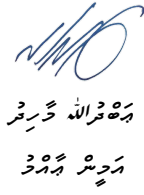 ޢަބްދުﷲ މާހިދު
އަމީން ޢާއްމު